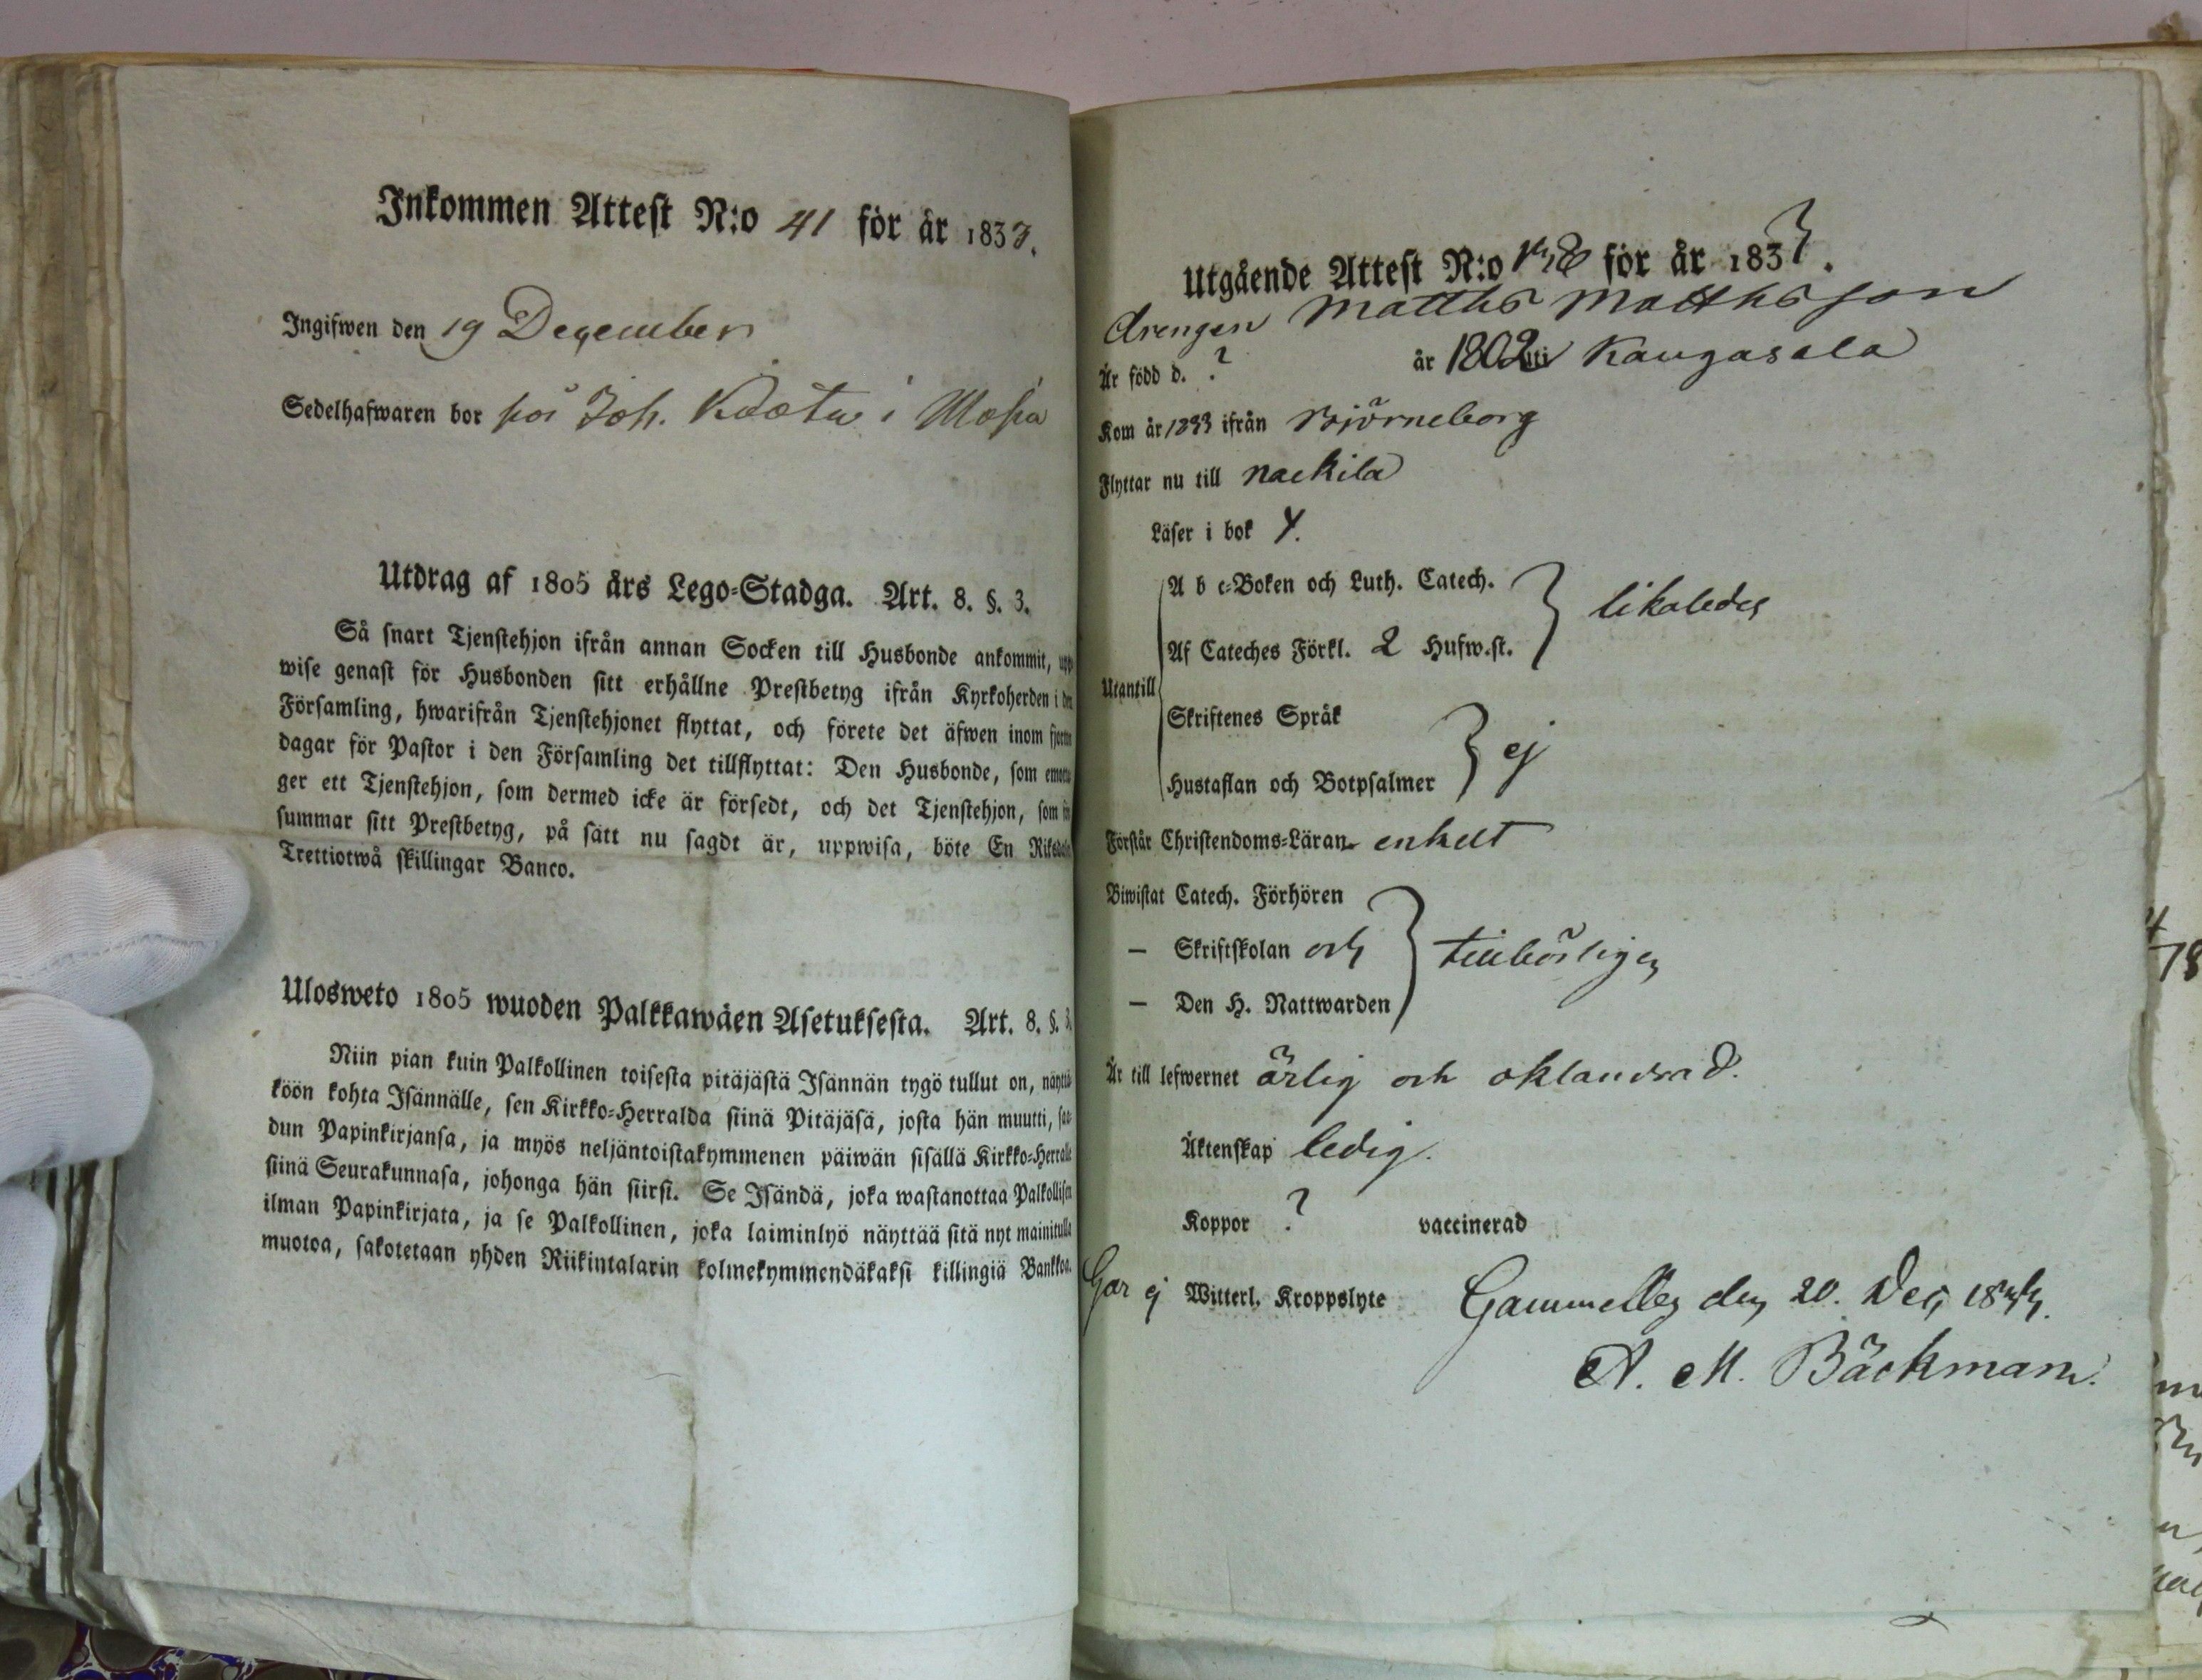 Inkommen Attest N:o 41 för år 1833.
Ingifwen den 19 December
Sedelhafwaren bor på Joh. i
Utdrag af 1805 års Lego-Stadga. Art. 8. §. 3.
Så snart Tjenstehjon ifrån annan Socken till Husbonde ankommit, upp-
wise genast för Husbonden sitt erhållne Prestbetyg ifrån Kyrkoherden i den
Församling, hwarifrån Tjenstehjonet flyttat, och förete det äfwen inom fjorton
dagar för Pastor i den Församling det tillflyttat: Den Husbonde, som emotta-
ger ett Tjenstehjon, som dermed icke är försedt, och det Tjenstehjon, som för-
summar sitt Prestbetyg, på sätt nu sagdt är, uppwisa, böte En Riksdaler
Trettiotwå skillingar Banco.
Ulosweto 1805 wuoden Palkkawäen Asetuksesta. Art. 8. §. 3.
Niin pian kuin Palkollinen toisesta pitäjästä Isännän tygö tullut on, näyttä-
köön kohta Isännälle, sen Kirkko-Herralda siinä Pitäjäsä, josta hän muutti, saa-
dun Papinkirjansa, ja myös neljäntoistakymmenen päiwän sisällä Kirkko-Herralle
siinä Seurakunnasa, johonga hän siirsi. Se Isändä, joka wastanottaa Palkollisen
ilman Papinkirjata, ja se Palkollinen, joka laiminlyö näyttää sitä nyt mainitulla
muotoa, sakotetaan yhden Riikintalarin kolmekymmendäkaksi killingiä Bankkoa.
Utgående Attest N:o för år 1833.
drengen Matths Matthsson
Är född d. ? år 1802 uti Kangasala
Kom år 1833 ifrån Björneborg
Flyttar nu till Nackila
Läser i bok 4.
Utantill
A b c-Boken och Luth. Catech.
Af Cateches Förkl. 2 Hufw.st.
likaledes
Skriftenes Språk
Hustaflan och Botpsalmer
ej
Förstår Christendoms-Läran enkelt
Biwistat Catech. Förhören
— Skriftskolan och
— Den H. Nattwarden
tillbörligen
Är till lefwernet ärlig och oklandrad.
Äktenskap ledig.
Koppor ? vaccinerad
Har ej Witterl. Kroppslyte
Gammelby den 20. Dec, 1833.
A. M. Bäckman.